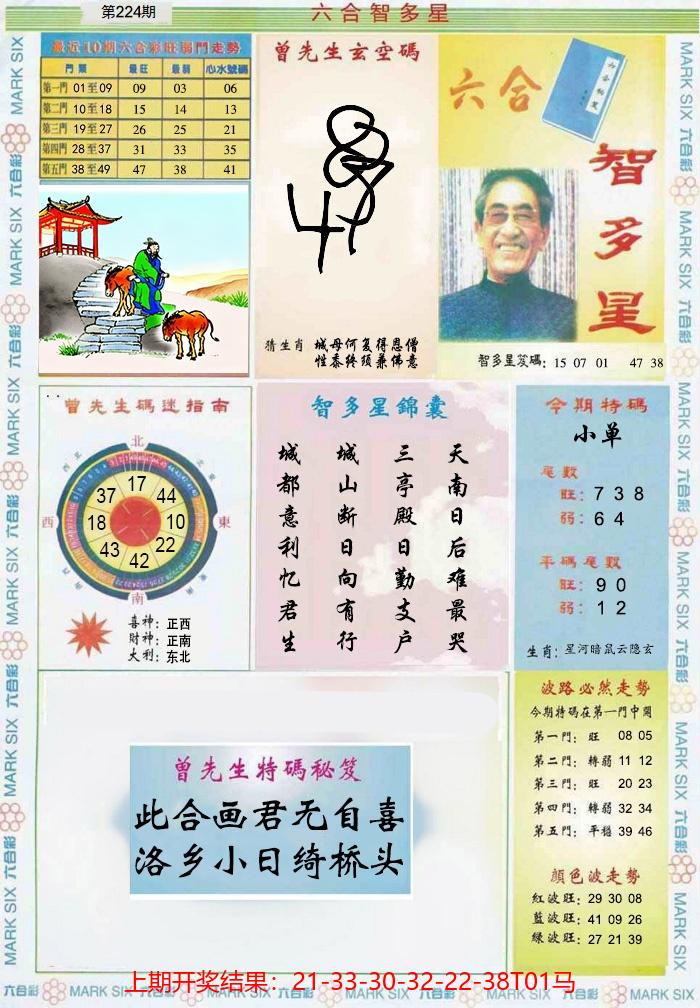 第224期
六合智多星
最近10期六合彩旺弱門走勢
門類 最旺 最弱 心水號碼
第一門 01至09 09 03 06
第二門 10至18 15 14 13
第三門 19至27 26 25 21
第四門 28至37 31 33 35
第五門 38至49 47 38 41
曾先生玄空碼
猜生肖 城毋何复得恩僧
性泰終须兼佛意
六合
智多星
智多星笈碼: 15 07 01 47 38
曾先生碼迷指南
北
西北
東北
西
東
南
17
44
10
22
42
43
18
37
喜神: 正西
財神: 正南
大利: 东北
智多星錦囊
天南日后难最哭
三亭殿日勤支户
城山断日向有行
城都意利忆君生
今期特碼
小单
尾數
旺: 7 3 8
弱: 6 4
平碼尾數
旺: 9 0
弱: 1 2
生肖: 星河暗鼠云隐玄
曾先生特碼秘笈
此合画君无自喜
洛乡小日绮桥头
波路必然走勢
今期特碼在第一門中開
第一門: 旺 08 05
第二門: 轉弱 11 12
第三門: 旺 20 23
第四門: 轉弱 32 34
第五門: 平穩 39 46
顏色波走勢
紅波旺: 29 30 08
藍波旺: 41 09 26
綠波旺: 27 21 39
上期开奖结果：21-33-30-32-22-38T01马
MARK SIX 六合彩